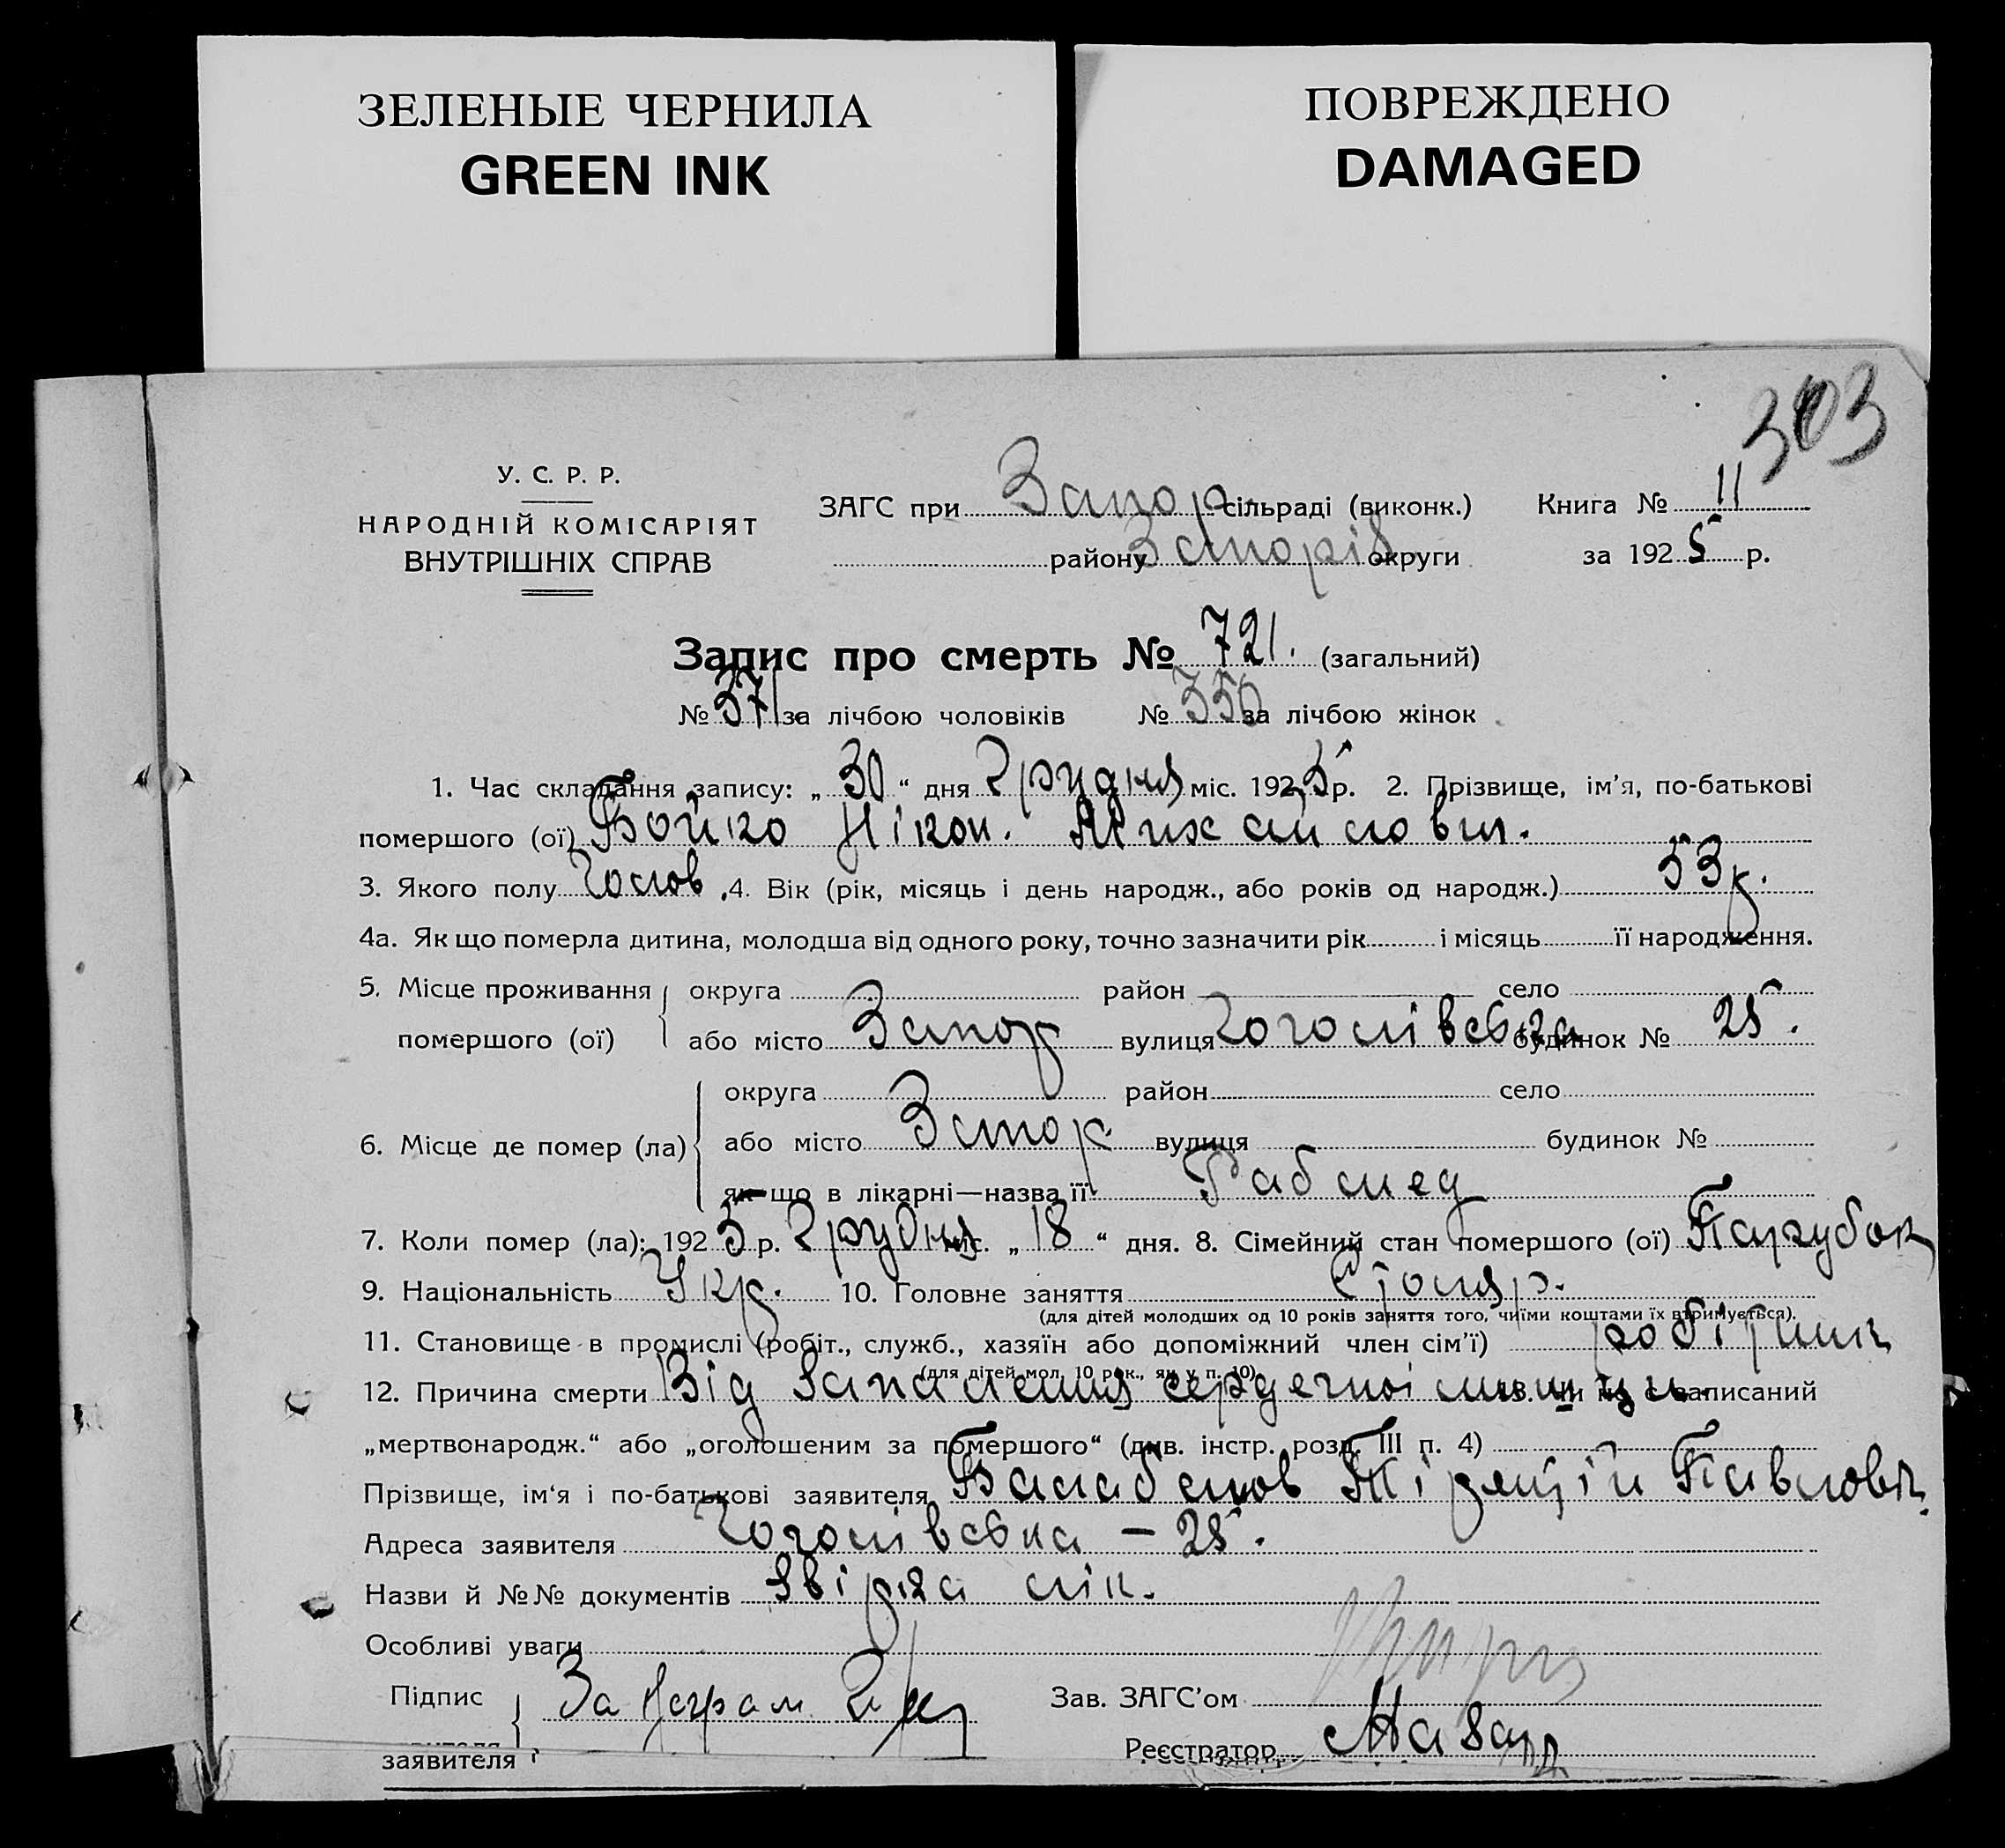 ЗЕЛЕНЫЕ ЧЕРНИЛА
GREEN INK
ПОВРЕЖДЕНО
DAMAGED
303
У. С. Р. Р.
НАРОДНІЙ КОМІСАРІЯТ
ВНУТРІШНІХ СПРАВ
ЗАГС при Запор. сільраді (виконк.)
району Запоріз. округи
Книга № 11
за 1925 р.
Запис про смерть № 721. (загальний)
№ 371 за лічбою чоловіків № 350 за лічбою жінок
1. Час складання запису: „30“ дня Грудня міс. 1925 р. 2. Прізвище, ім’я, по-батькові
помершого (ої) Бойко Нікон. Михайлович.
3. Якого полу Чолов. 4. Вік (рік, місяць і день народж., або років од народж.) 53 р.
4а. Як що померла дитина, молодша від одного року, точно зазначити рік і місяць її народження.
5. Місце проживання округа район село
помершого (ої) або місто Запор вулиця Гоголівська будинок № 25.
округа район село
6. Місце де помер (ла) або місто Запор. вулиця будинок №
як що в лікарні—назва її Рабмед
7. Коли помер (ла): 1925 р. Грудня міс. „18“ дня. 8. Сімейний стан помершого (ої) Парубок
9. Національність Укр. 10. Головне заняття Столяр.
(для дітей молодших од 10 років заняття того, чиїми коштами їх втримується).
11. Становище в промислі (робіт., служб., хазяїн або допоміжний член сім’ї) робітник
(для дітей мол. 10 рок., як у п. 10)
12. Причина смерти Від запалення сердечної мишци. чи не є записаний
„мертвонародж.“ або „оголошеним за помершого“ (див. інстр. розд. III п. 4)
Прізвище, ім‘я і по-батькові заявителя Балабанов Павлович.
Адреса заявителя Гоголівська – 25.
Назви й №№ документів Звірка лік.
Особливі уваги
Підпис За
заявителя
Зав. ЗАГС’ом
Реєстратор